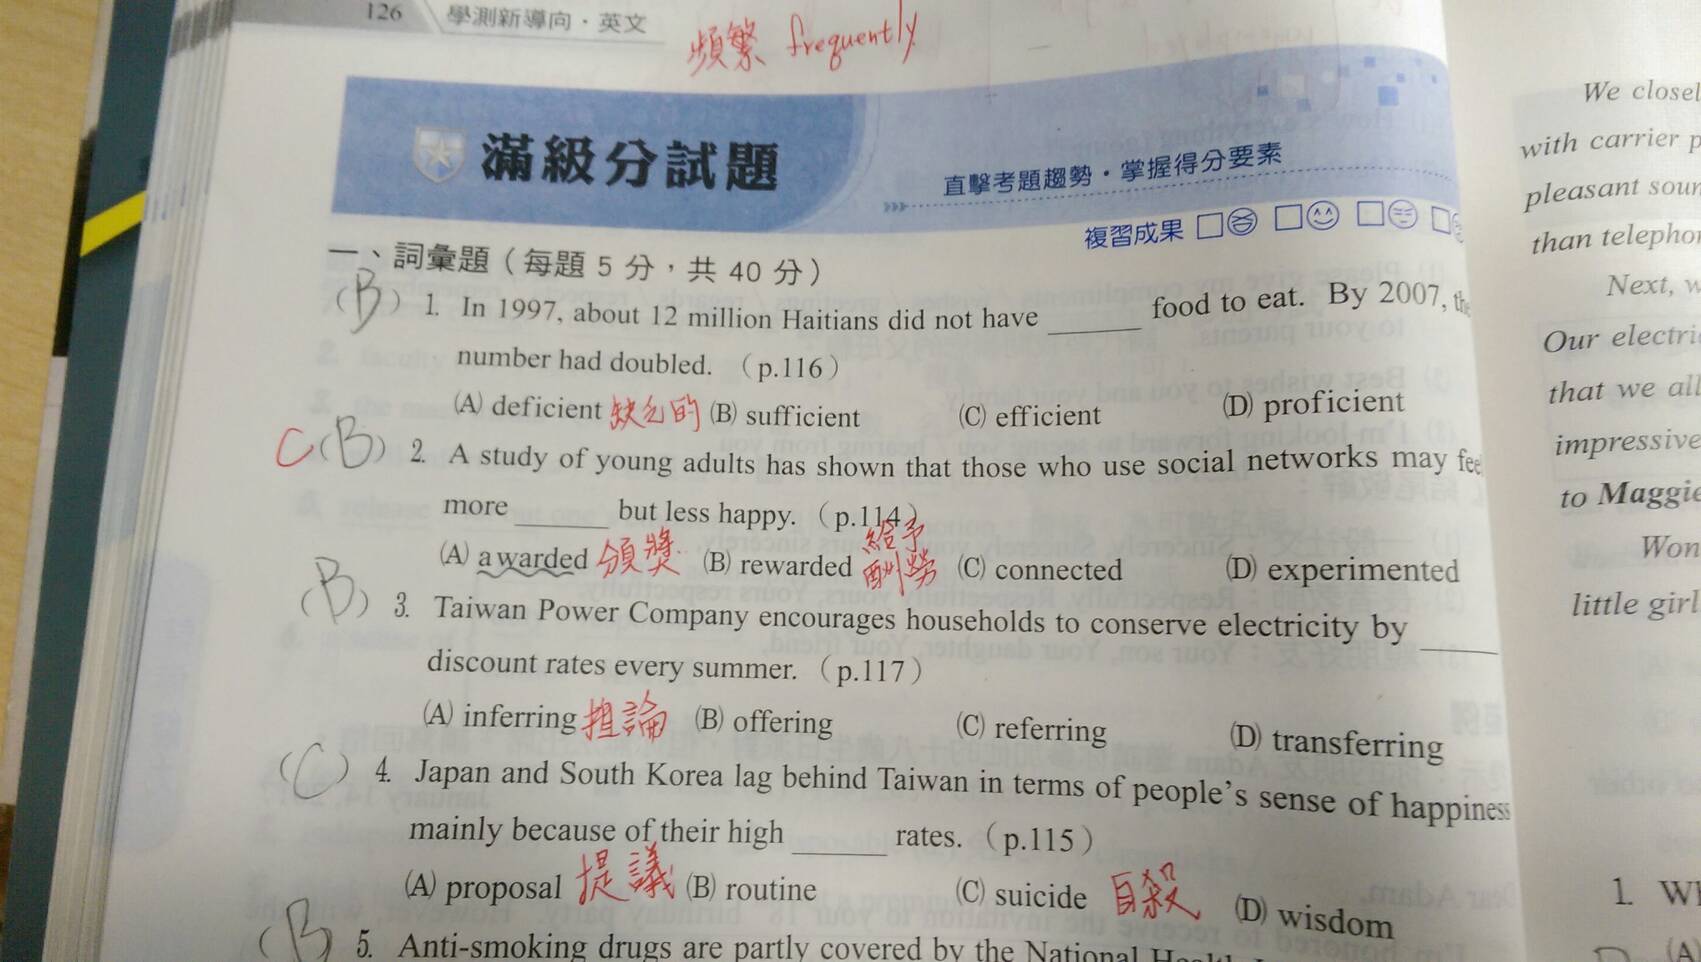 126 學測新導向·英文
頻繁 frequently
滿級分試題
直擊考題趨勢·掌握得分要素
複習成果
一、詞彙題(每題 5 分,共 40 分)
(B) 1. In 1997, about 12 million Haitians did not have ______ food to eat. By 2007, the
number had doubled. (p.116)
(A) deficient 缺乏的 (B) sufficient (C) efficient (D) proficient
C (B) 2. A study of young adults has shown that those who use social networks may feel
more ______ but less happy. (p.114)
(A) awarded 頒獎 (B) rewarded 給予酬勞 (C) connected (D) experimented
(B) 3. Taiwan Power Company encourages households to conserve electricity by ______
discount rates every summer. (p.117)
(A) inferring 推論 (B) offering (C) referring (D) transferring
(C) 4. Japan and South Korea lag behind Taiwan in terms of people's sense of happiness
mainly because of their high ______ rates. (p.115)
(A) proposal 提議 (B) routine (C) suicide 自殺 (D) wisdom
(B) 5. Anti-smoking drugs are partly covered by the National
We closel
with carrier p
pleasant soun
than telephon
Next, w
Our electri
that we all
impressive
to Maggie
Won
little girl
1. Wh
(A)